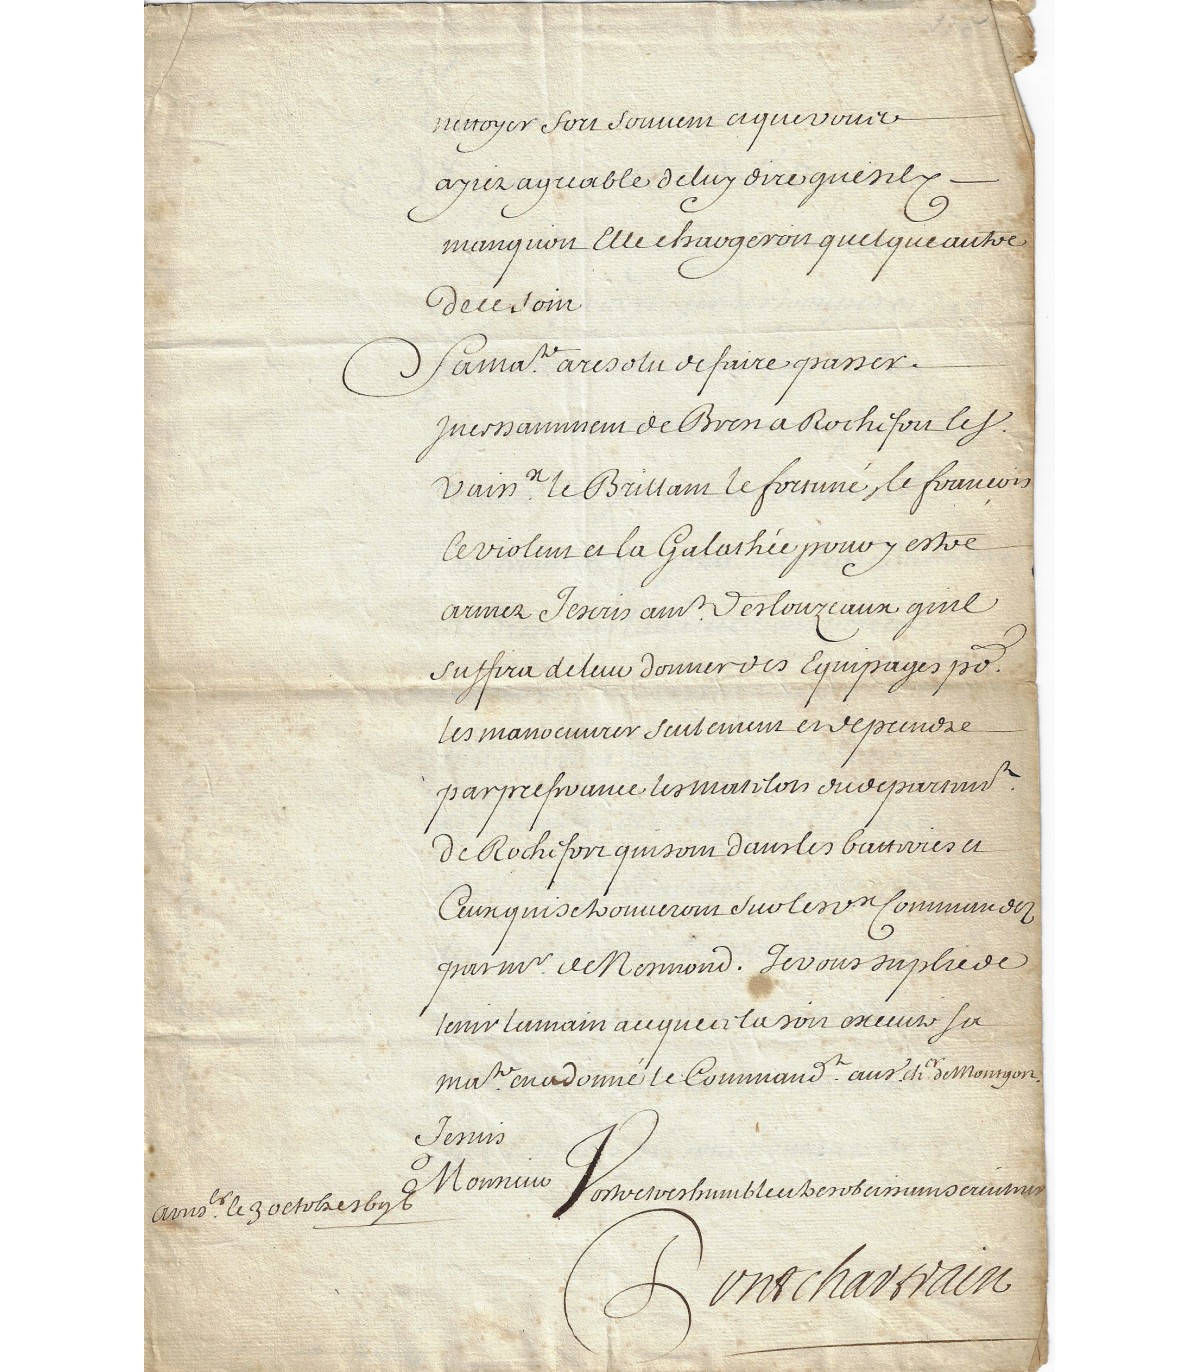 nettoyer fort souvent et que vous
ayiez agreable de luy dire que s'ils y
manquent Elle chargeront quelque autre
de ce soin
Sa ma.té a resolu de faire passer
Incessamment de Brest a Rochefort les
vaiss.x le Brillant le fortuné, le françois
le violent et la Galathée pour y estre
armez J'escris a m.r Desclouzeaux qu'il
suffira de leur donner des Equipages po.r
les manoeuvrer seulement et de prendre
par preferance les matelots du departem.t
de Rochefort qui sont dans les batteries et
Ceux qui se trouveront sur les v.x Commandez
par m.r de Nesmond. Je vous suplie de
tenir la main a ce que cela soit execute sa
ma.té en a donné le Command.t au s.r ch.er de Montgon.
Je suis
Monsieur Vostre tres humble et tres obeissant serviteur
a vers.les le 3 octobre 1696
Pontchartrain